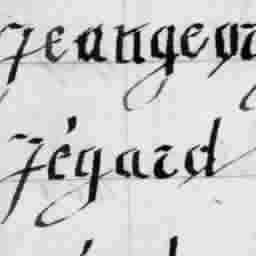 Jeangeor
Jégard